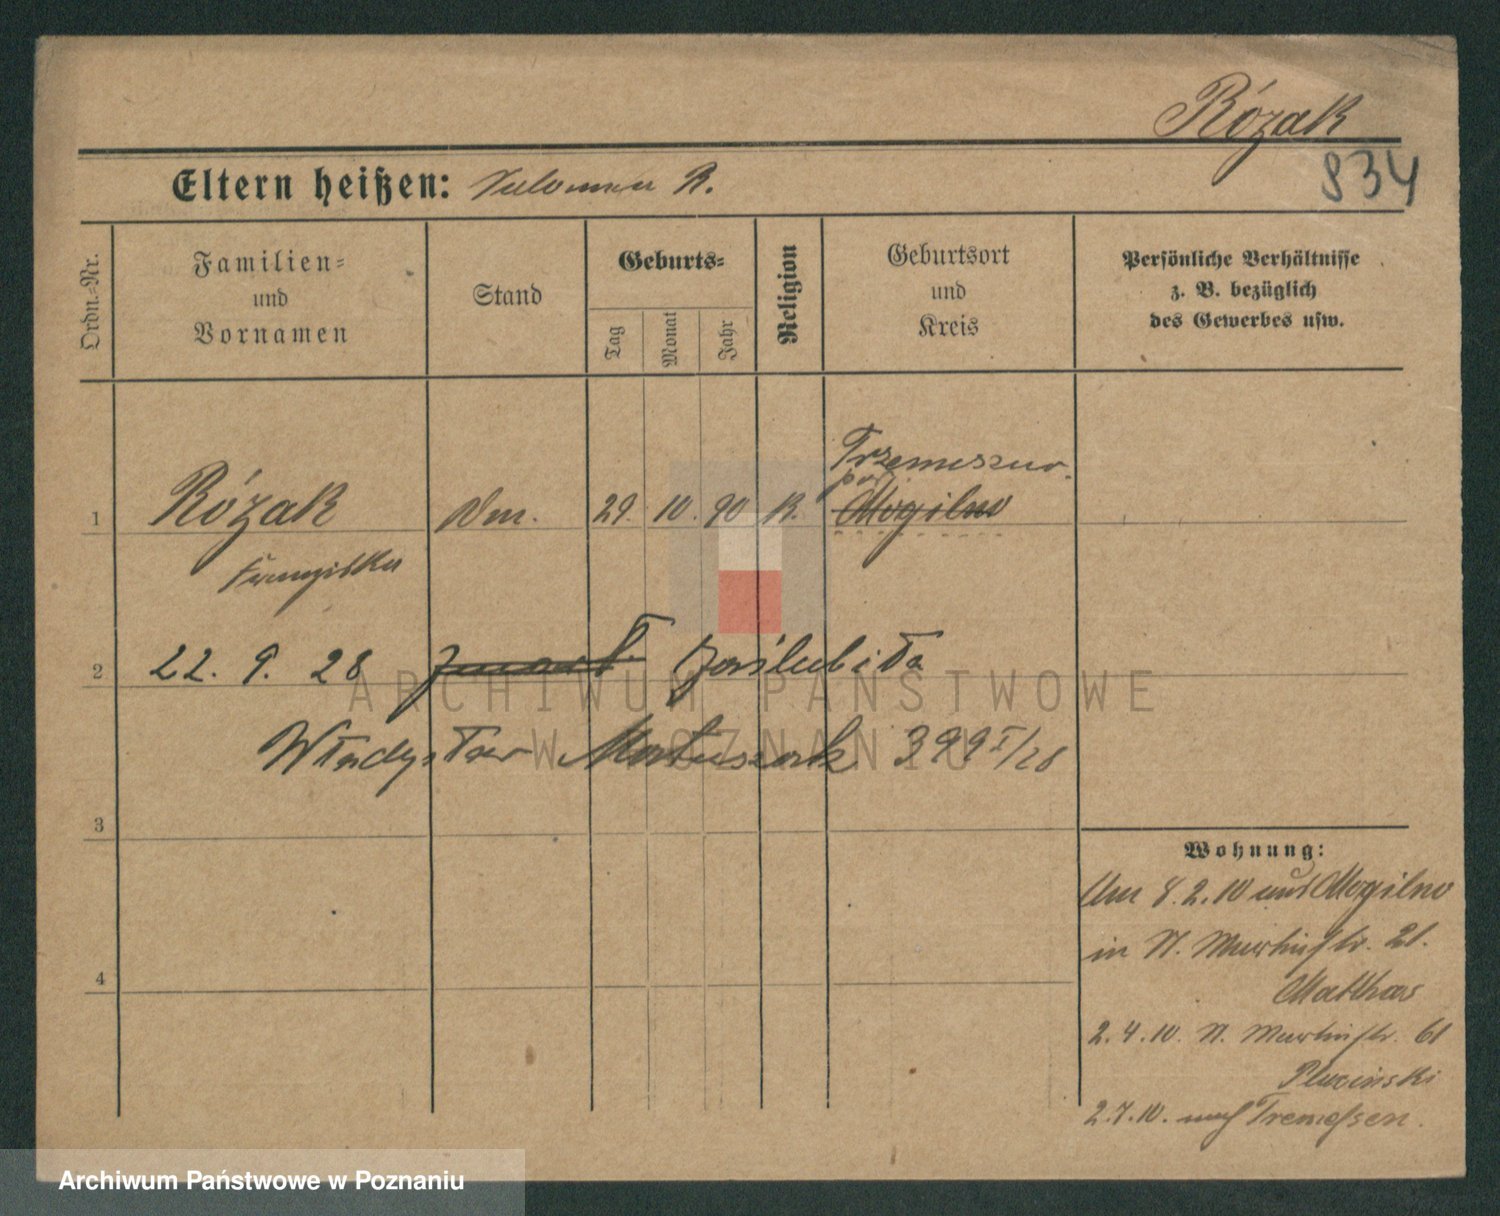 Rózak
834
Eltern heißen: R.
Ordn.-Nr.
Familien-
und
Vornamen
Stand
Geburts-
Tag
Monat
Jahr
Religion
Geburtsort
und
Kreis
Persönliche Verhältnisse
z. B. bezüglich
des Gewerbes usw.
Trzemeszno
pow.
1 Rózak 29. 10. 90 K. Mogilno
Franziska
2 22. 9. 28 poślubiła
Władysław Matuszak 399 I/28
3
Wohnung:
Am 8.2.10 aus Mogilno
in St. Martinstr. 21.
4
2.4.10. St. Martinstr. 61
2.7.10. nach Tremessen.
ARCHIWUM PAŃSTWOWE
W POZNANIU
Archiwum Państwowe w Poznaniu